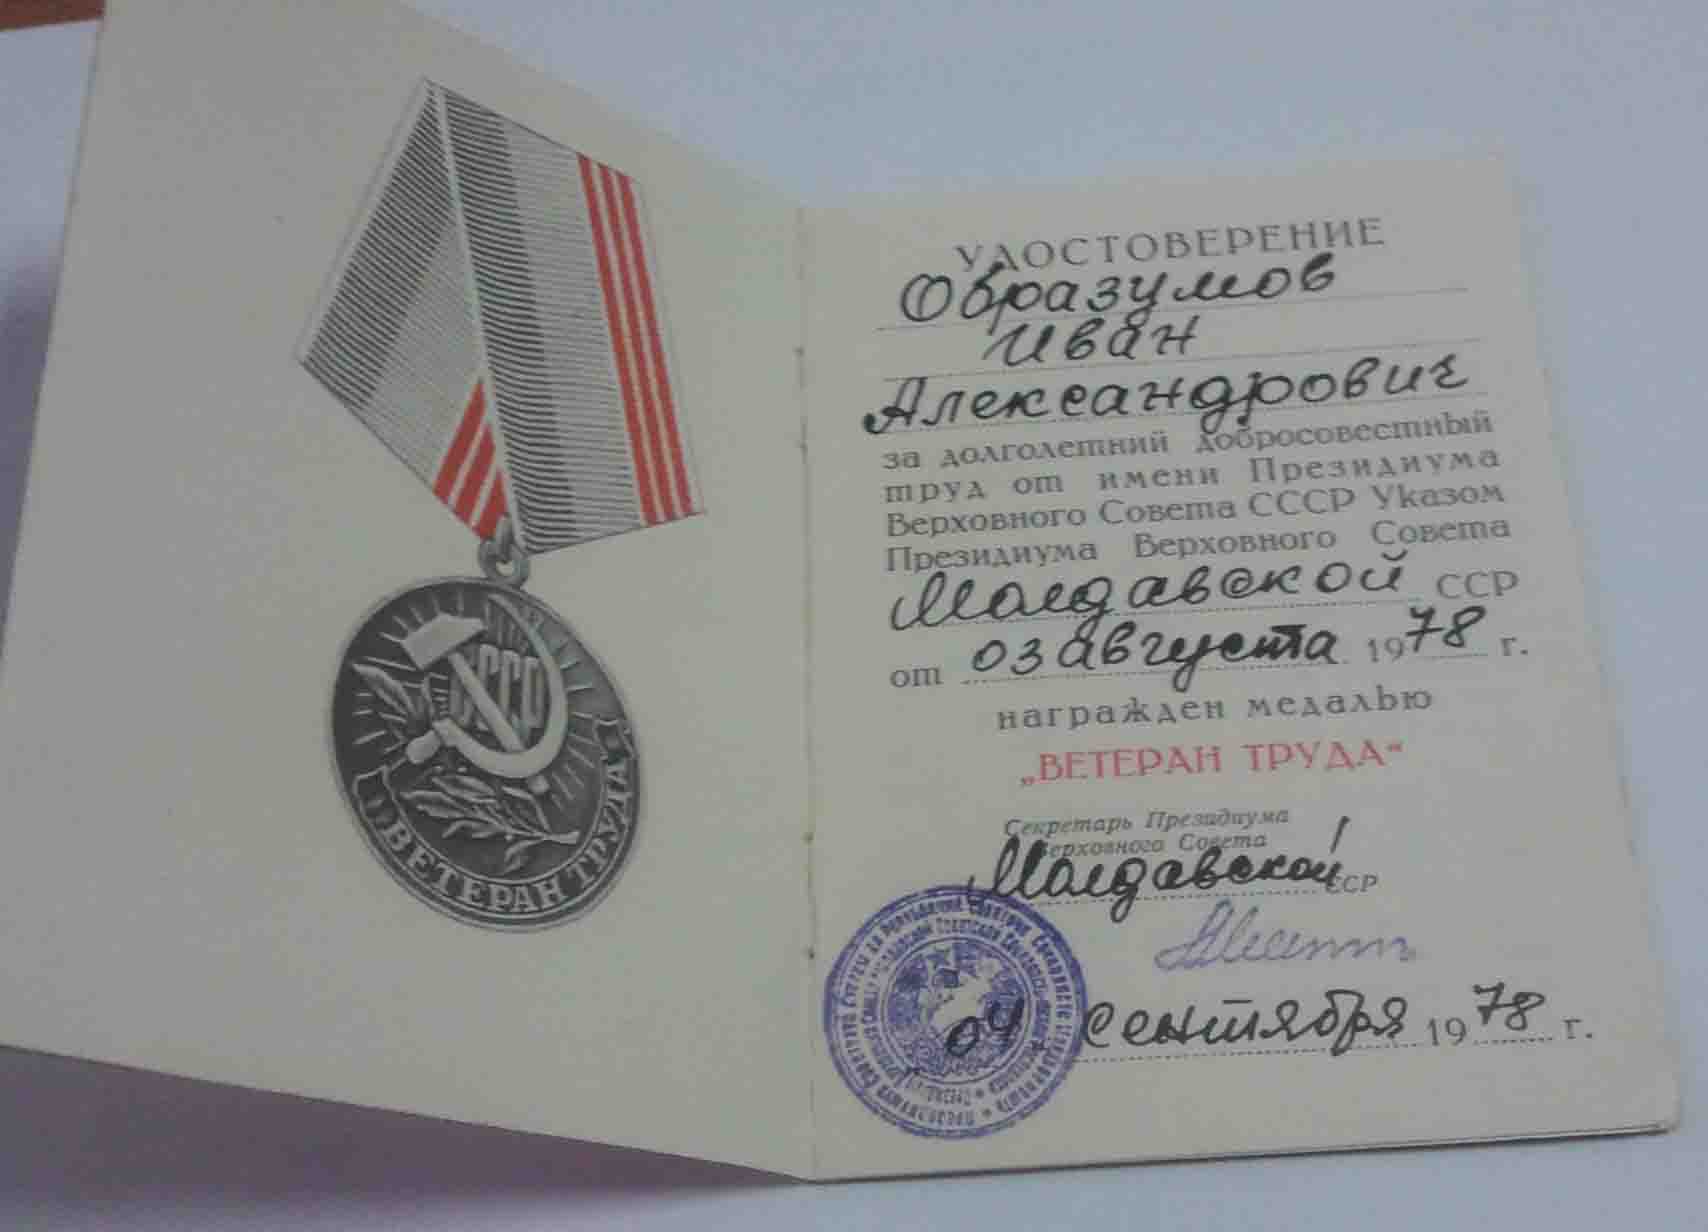 СССР
ВЕТЕРАН ТРУДА
УДОСТОВЕРЕНИЕ
Образумов
Иван
Александрович
за долголетний добросовестный
труд от имени Президиума
Верховного Совета СССР Указом
Президиума Верховного Совета
Молдавской ССР
от 03 августа 1978 г.
награжден медалью
„ВЕТЕРАН ТРУДА“
Секретарь Президиума
Верховного Совета
Молдавской ССР
04 сентября 1978 г.